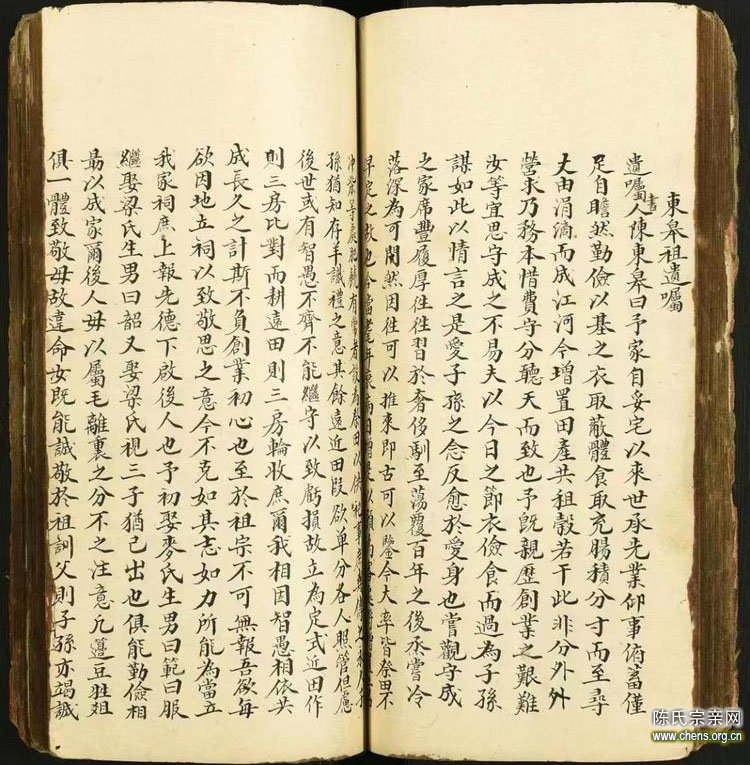 東皐祖遺囑
遺囑書人陳東皐曰予家自妥宅以來世承先業仰事俯畜僅
足自贍然勤儉以基之衣取蔽體食取充腸積分寸而至尋
丈由涓滴而成江河今增置田產共租穀若干此非分外外
營求乃務本惜費守分聽天而致也予既親歷創業之艱難
汝等宜思守成之不易夫以今日之節衣儉食而過為子孫
謀如此以情言之是愛子孫之念反愈於愛身也嘗觀守成
之家席豐履厚往往習於奢侈馴至蕩覆百年之後烝嘗冷
落深為可閔然因往可以推來即古可以鑒今大率皆祭田不
早定之故也今當耄年
沖祭等處肥饒有
孫猶知存羊識禮之意其餘遠近田段欲單分各人照管但慮
後世或有智愚不齊不能繼守以致虧損故立為定式近田作
則三房比對而耕遠田則三房輪收庶爾我相因智愚相依共
成長久之計斯不負創業初心也至於祖宗不可無報吾欲每
欲因地立祠以致敬思之意今不克如其志如力所能為當立
我家祠庶上報先德下啟後人也予初娶麥氏生男曰範曰服
繼娶梁氏生男曰韶又娶梁氏視三子猶己出也俱能勤儉相
勗以成家爾後人毋以屬毛離裏之分不之注意凡籩豆牲俎
俱一體致敬毋故違命女既能誠敬於祖訓父則子孫亦竭誠
陈氏宗亲网
www.chens.org.cn